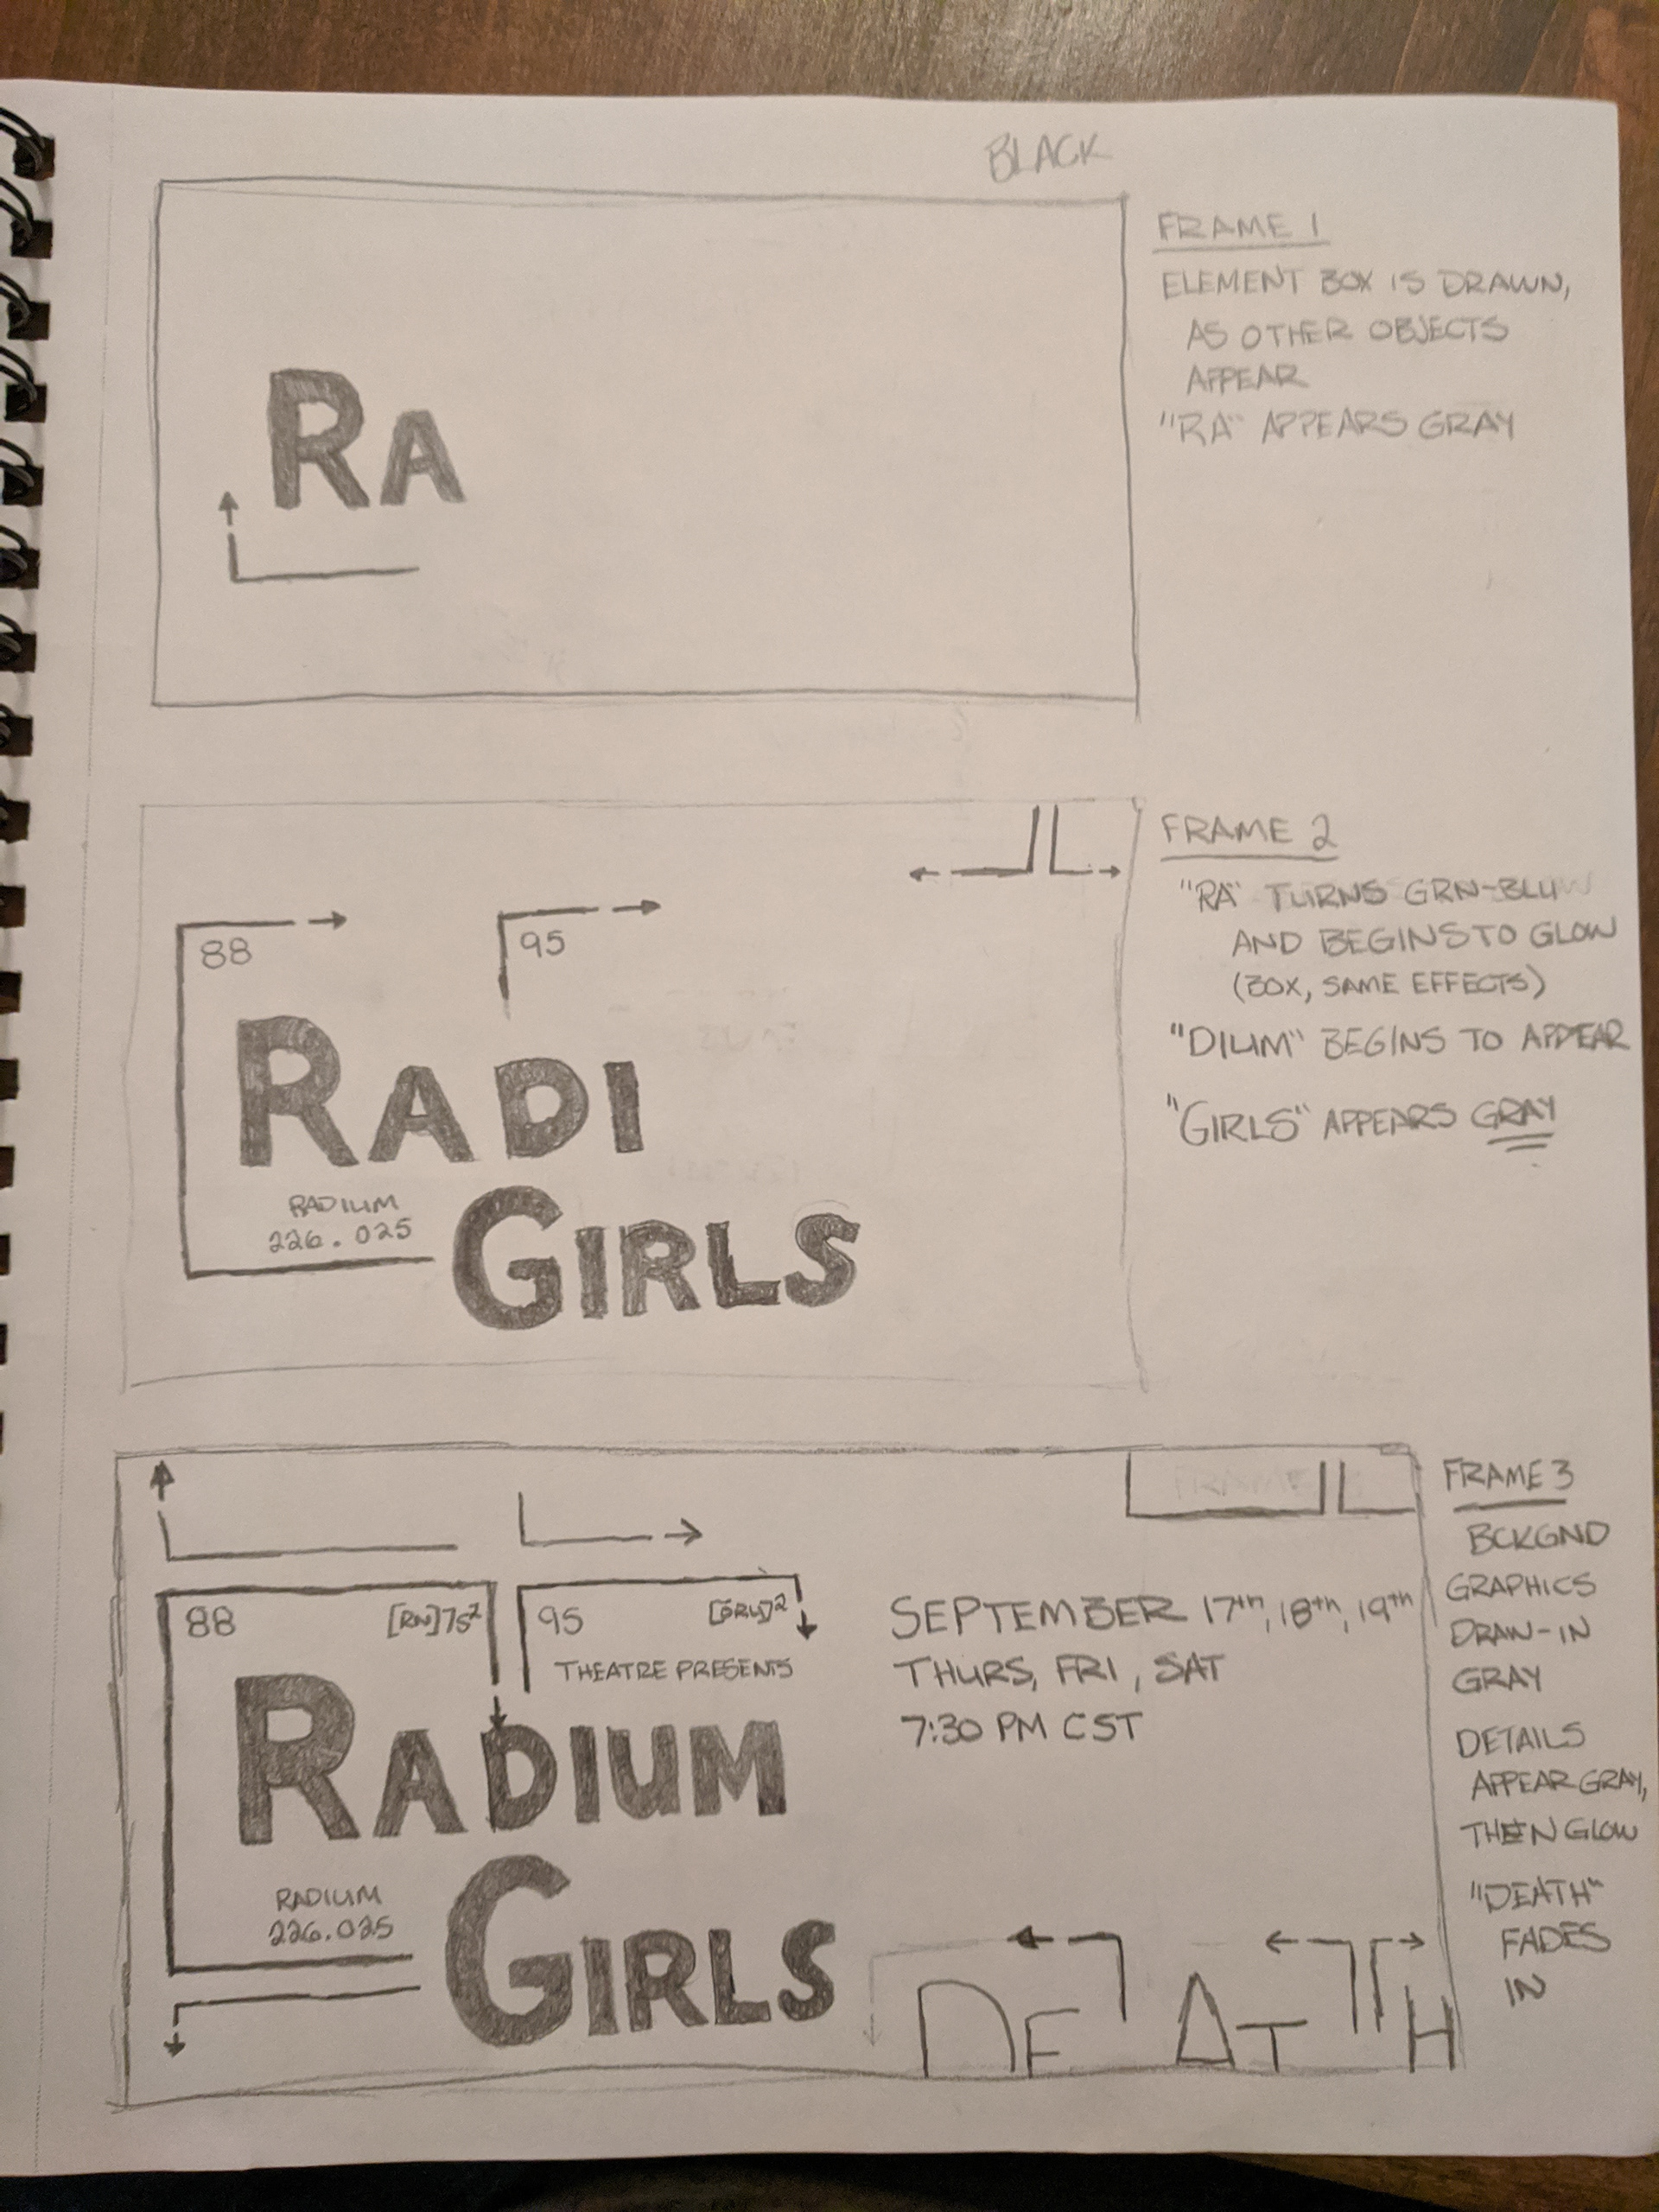 BLACK
RA
FRAME 1
ELEMENT BOX IS DRAWN,
AS OTHER OBJECTS
APPEAR
"RA" APPEARS GRAY
88
95
RADI
RADIUM
226.025
GIRLS
FRAME 2
"RA" TURNS GRN-BLU
AND BEGINS TO GLOW
(BOX, SAME EFFECTS)
"DIUM" BEGINS TO APPEAR
"GIRLS" APPEARS GRAY
88 [RN]7S²
95 [GRL]²
THEATRE PRESENTS
RADIUM
RADIUM
226.025
GIRLS
SEPTEMBER 17th, 18th, 19th
THURS, FRI, SAT
7:30 PM CST
DE AT H
FRAME 3
BCKGND
GRAPHICS
DRAW-IN
GRAY
DETAILS
APPEAR GRAY,
THEN GLOW
"DEATH"
FADES
IN